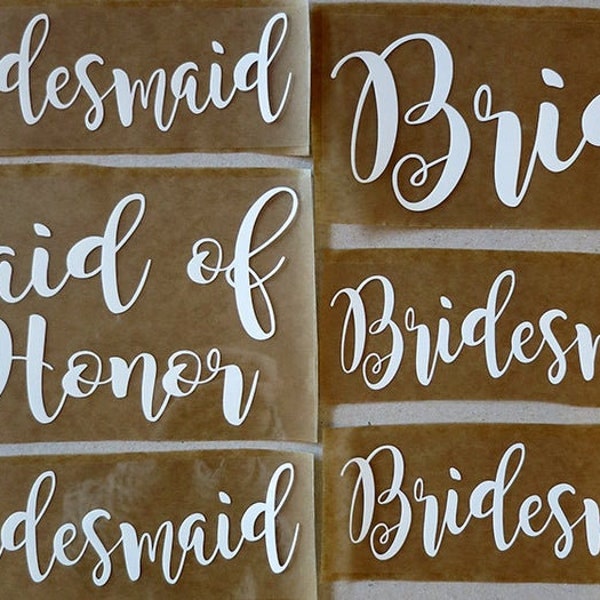 idesmaid
aid of
Honor
desmaid
Brid
Bridesm
Bridesm